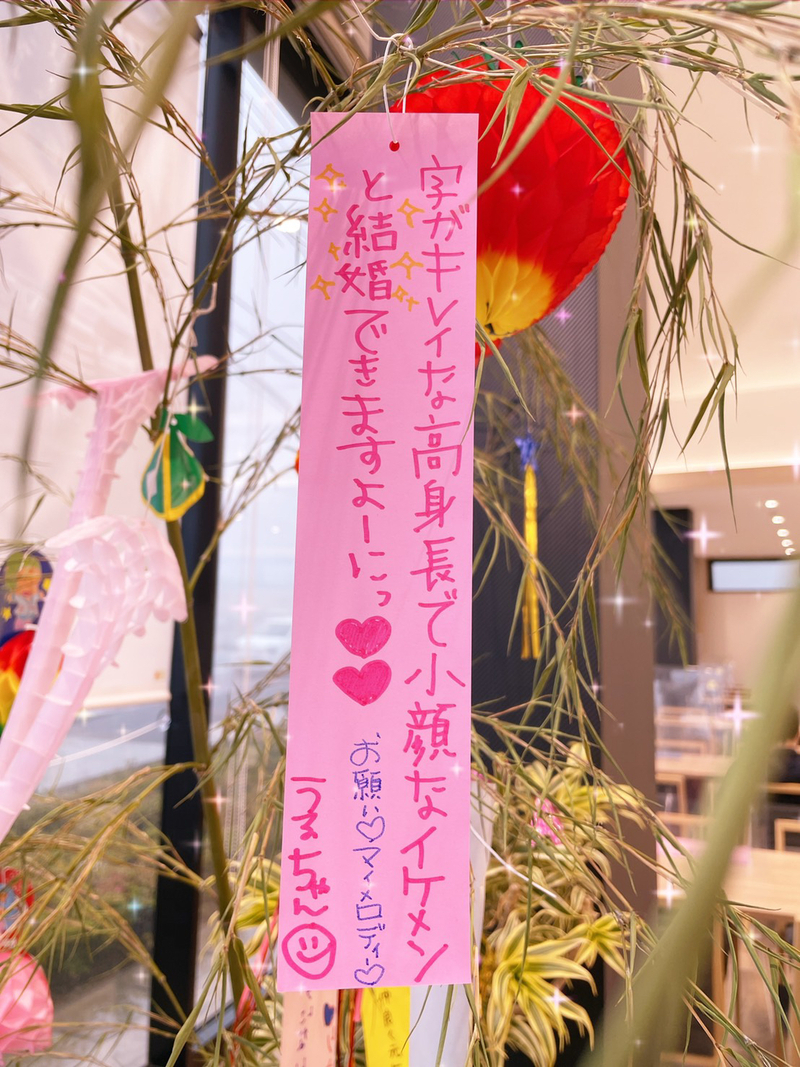 字がキレイな高身長で小顔なイケメン
と結婚できますよーにっ
お願い♡マイメロディ♡
うぇちゃん